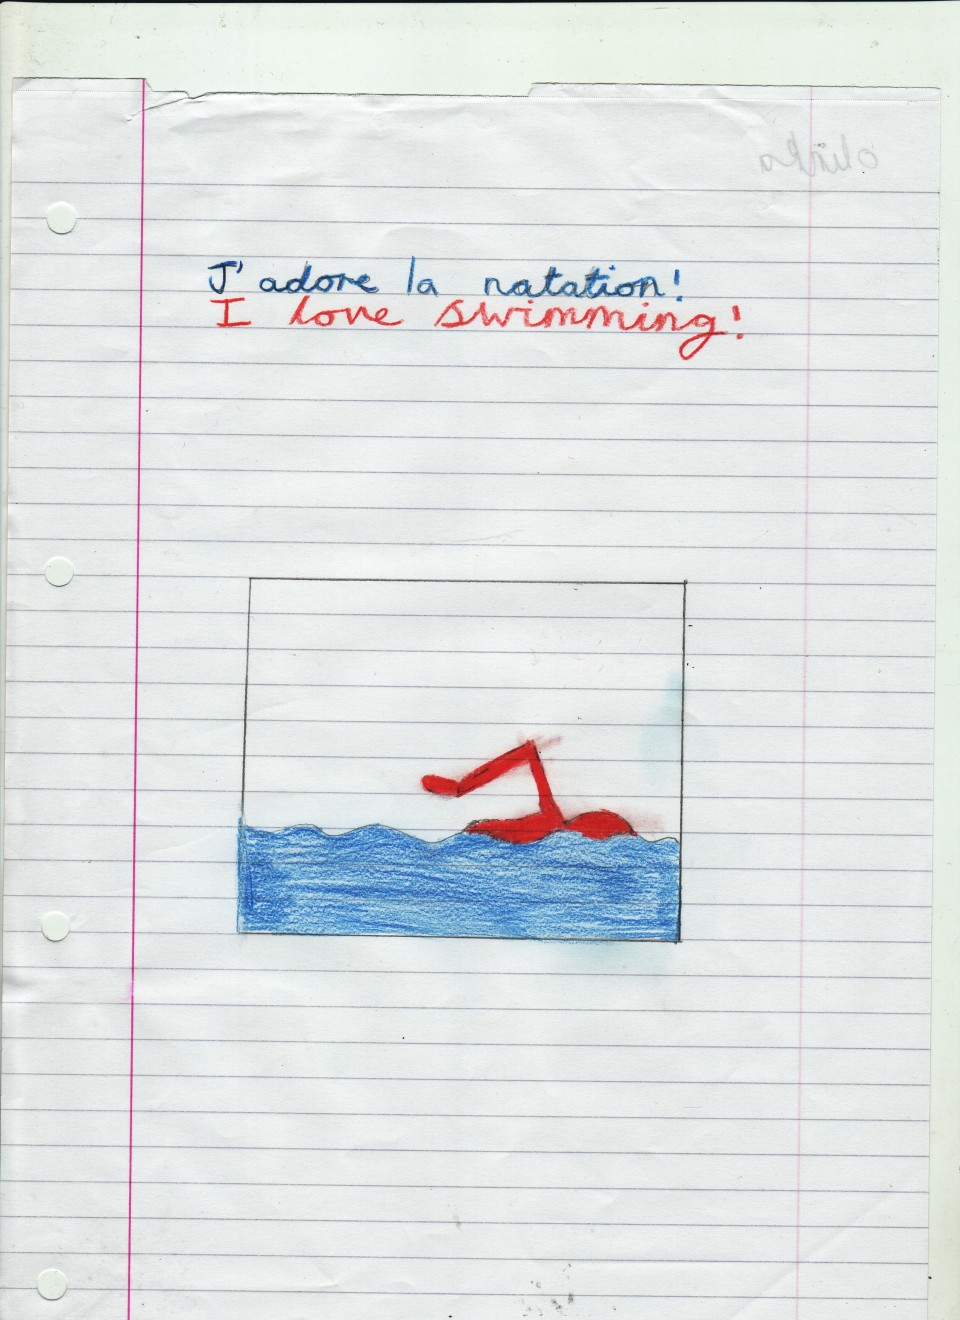 J'adore la natation!
I love swimming!